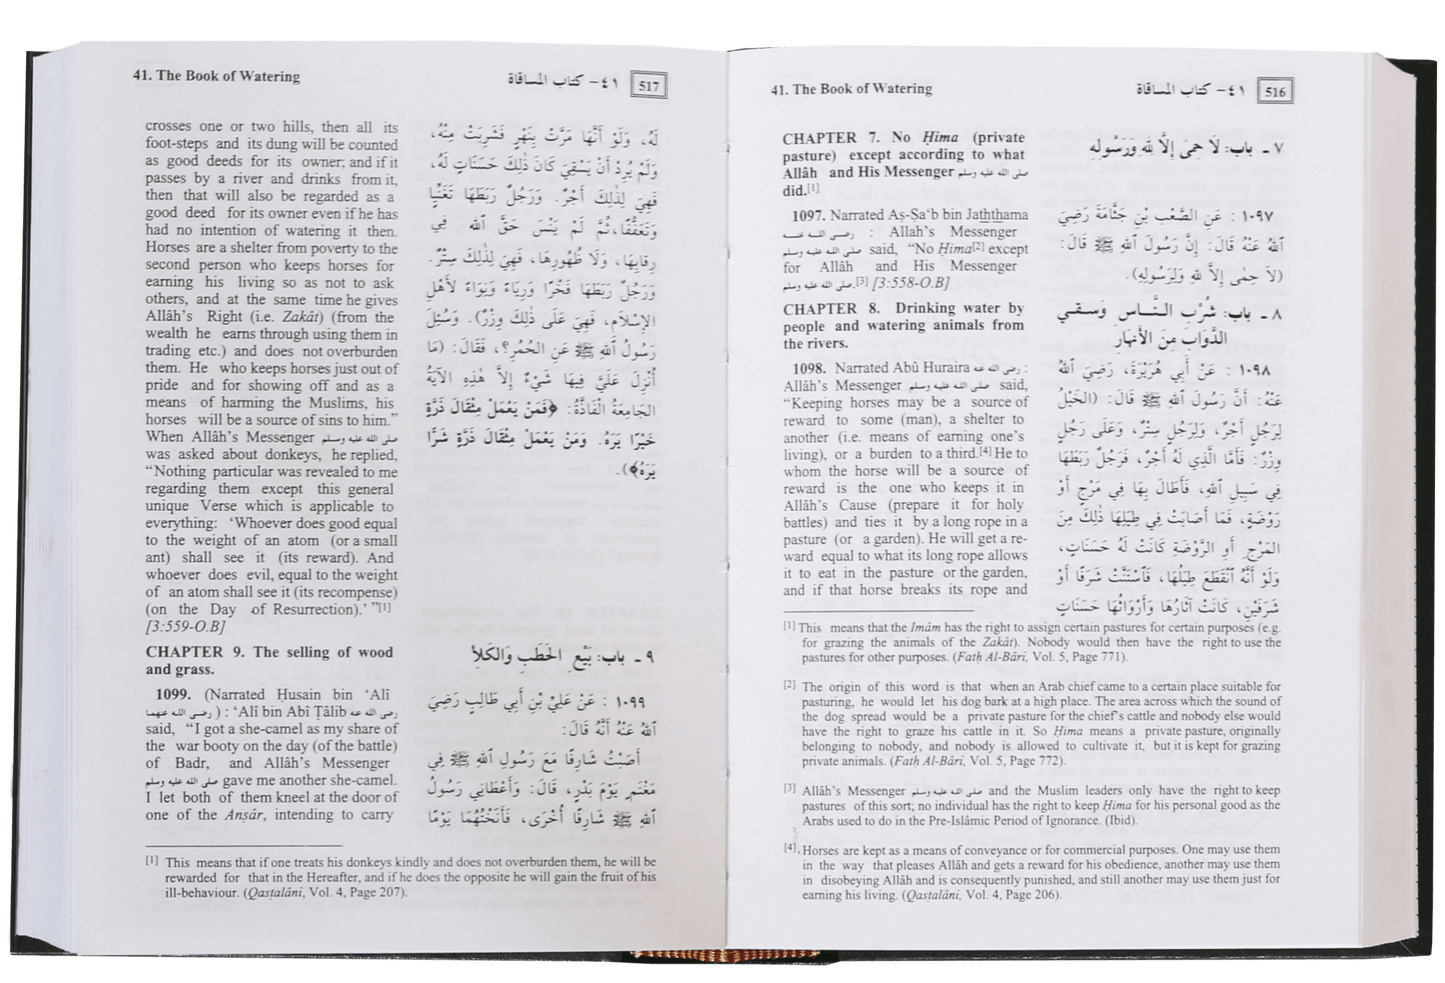 41. The Book of Watering
٤١- كتاب المساقاة
516
CHAPTER 7. No Ḥima (private
pasture) except according to what
Allâh and His Messenger صلى الله عليه وسلم
did.[1]
1097. Narrated Aṣ-Ṣa‘b bin Jaththama
رضي الله عنه : Allah's Messenger
صلى الله عليه وسلم said, “No Ḥima[2] except
for Allâh and His Messenger
صلى الله عليه وسلم.[3] [3:558-O.B]
CHAPTER 8. Drinking water by
people and watering animals from
the rivers.
1098. Narrated Abû Huraira رضي الله عنه :
Allâh's Messenger صلى الله عليه وسلم said,
“Keeping horses may be a source of
reward to some (man), a shelter to
another (i.e. means of earning one's
living), or a burden to a third.[4] He to
whom the horse will be a source of
reward is the one who keeps it in
Allâh's Cause (prepare it for holy
battles) and ties it by a long rope in a
pasture (or a garden). He will get a re-
ward equal to what its long rope allows
it to eat in the pasture or the garden,
and if that horse breaks its rope and
٧ ـ باب: لَا حِمَى إِلَّا لِلهِ وَرَسُولِهِ
١٠٩٧ : عَنِ الصَّعْبِ بْنِ جَثَّامَةَ رَضِيَ
اللهُ عَنْهُ قَالَ: إِنَّ رَسُولَ اللهِ ﷺ قَالَ:
(لَا حِمَى إِلَّا لِلهِ وَلِرَسُولِهِ).
٨ ـ باب: شُرْبِ النَّاسِ وَسَقي
الدَّوَابِّ مِنَ الأَنهَارِ
١٠٩٨ : عَنْ أَبِي هُرَيْرَةَ، رَضِيَ اللهُ
عَنْهُ: أَنَّ رَسُولَ اللهِ ﷺ قَالَ: (الخَيْلُ
لِرَجُلٍ أَجْرٌ، وَلِرَجُلٍ سِتْرٌ، وَعَلَى رَجُلٍ
وِزْرٌ: فَأَمَّا الَّذِي لَهُ أَجْرٌ، فَرَجُلٌ رَبَطَهَا
فِي سَبِيلِ اللهِ، فَأَطَالَ بِهَا فِي مَرْجٍ أَوْ
رَوْضَةٍ، فَمَا أَصَابَتْ فِي طِيَلِهَا ذٰلِكَ مِنَ
المَرْجِ أَوِ الرَّوْضَةِ كَانَتْ لَهُ حَسَنَاتٍ،
وَلَوْ أَنَّهُ انْقَطَعَ طِيَلُهَا، فَاسْتَنَّتْ شَرَفًا أَوْ
شَرَفَيْنِ، كَانَتْ آثَارُهَا وَأَرْوَاثُهَا حَسَنَاتٍ
[1] This means that the Imâm has the right to assign certain pastures for certain purposes (e.g.
for grazing the animals of the Zakât). Nobody would then have the right to use the
pastures for other purposes. (Fatḥ Al-Bâri, Vol. 5, Page 771).
[2] The origin of this word is that when an Arab chief came to a certain place suitable for
pasturing, he would let his dog bark at a high place. The area across which the sound of
the dog spread would be a private pasture for the chief's cattle and nobody else would
have the right to graze his cattle in it. So Ḥima means a private pasture, originally
belonging to nobody, and nobody is allowed to cultivate it, but it is kept for grazing
private animals. (Fatḥ Al-Bâri, Vol. 5, Page 772).
[3] Allâh's Messenger صلى الله عليه وسلم and the Muslim leaders only have the right to keep
pastures of this sort; no individual has the right to keep Ḥima for his personal good as the
Arabs used to do in the Pre-Islâmic Period of Ignorance. (Ibid).
[4] Horses are kept as a means of conveyance or for commercial purposes. One may use them
in the way that pleases Allâh and gets a reward for his obedience, another may use them
in disobeying Allâh and is consequently punished, and still another may use them just for
earning his living. (Qasṭalâni, Vol. 4, Page 206).
41. The Book of Watering
٤١- كتاب المساقاة
517
crosses one or two hills, then all its
foot-steps and its dung will be counted
as good deeds for its owner; and if it
passes by a river and drinks from it,
then that will also be regarded as a
good deed for its owner even if he has
had no intention of watering it then.
Horses are a shelter from poverty to the
second person who keeps horses for
earning his living so as not to ask
others, and at the same time he gives
Allâh's Right (i.e. Zakât) (from the
wealth he earns through using them in
trading etc.) and does not overburden
them. He who keeps horses just out of
pride and for showing off and as a
means of harming the Muslims, his
horses will be a source of sins to him.”
When Allâh's Messenger صلى الله عليه وسلم
was asked about donkeys, he replied,
“Nothing particular was revealed to me
regarding them except this general
unique Verse which is applicable to
everything: ‘Whoever does good equal
to the weight of an atom (or a small
ant) shall see it (its reward). And
whoever does evil, equal to the weight
of an atom shall see it (its recompense)
(on the Day of Resurrection).’ ”[1]
[3:559-O.B]
CHAPTER 9. The selling of wood
and grass.
1099. (Narrated Ḥusain bin ‘Alî
رضي الله عنهما) : ‘Alî bin Abî Ṭâlib رضي الله عنه
said, “I got a she-camel as my share of
the war booty on the day (of the battle)
of Badr, and Allâh's Messenger
صلى الله عليه وسلم gave me another she-camel.
I let both of them kneel at the door of
one of the Anṣâr, intending to carry
لَهُ، وَلَوْ أَنَّهَا مَرَّتْ بِنَهْرٍ فَشَرِبَتْ مِنْهُ،
وَلَمْ يُرِدْ أَنْ يَسْقِيَ كَانَ ذٰلِكَ حَسَنَاتٍ لَهُ،
فَهِيَ لِذٰلِكَ أَجْرٌ. وَرَجُلٌ رَبَطَهَا تَغَنِّيًا
وَتَعَفُّفًا، ثُمَّ لَمْ يَنْسَ حَقَّ اللهِ فِي
رِقَابِهَا، وَلَا ظُهُورِهَا، فَهِيَ لِذٰلِكَ سِتْرٌ.
وَرَجُلٌ رَبَطَهَا فَخْرًا وَرِيَاءً وَنِوَاءً لأَهْلِ
الإِسْلَامِ، فَهِيَ عَلَى ذٰلِكَ وِزْرٌ). وَسُئِلَ
رَسُولُ اللهِ ﷺ عَنِ الحُمُرِ؟، فَقَالَ: (مَا
أُنْزِلَ عَلَيَّ فِيهَا شَيْءٌ إِلَّا هٰذِهِ الآيَةُ
الجَامِعَةُ الْفَاذَّةُ: ﴿فَمَنْ يَعْمَلْ مِثْقَالَ ذَرَّةٍ
خَيْرًا يَرَهُ. وَمَنْ يَعْمَلْ مِثْقَالَ ذَرَّةٍ شَرًّا
يَرَهُ﴾).
٩ ـ باب: بَيْعِ الحَطَبِ وَالكَلأِ
١٠٩٩ : عَنْ عَلِيِّ بْنِ أَبِي طَالِبٍ رَضِيَ
اللهُ عَنْهُ أَنَّهُ قَالَ:
أَصَبْتُ شَارِفًا مَعَ رَسُولِ اللهِ ﷺ فِي
مَغْنَمٍ يَوْمَ بَدْرٍ، قَالَ: وَأَعْطَانِي رَسُولُ
اللهِ ﷺ شَارِفًا أُخْرَى، فَأَنَخْتُهُمَا يَوْمًا
[1] This means that if one treats his donkeys kindly and does not overburden them, he will be
rewarded for that in the Hereafter, and if he does the opposite he will gain the fruit of his
ill-behaviour. (Qasṭalâni, Vol. 4, Page 207).